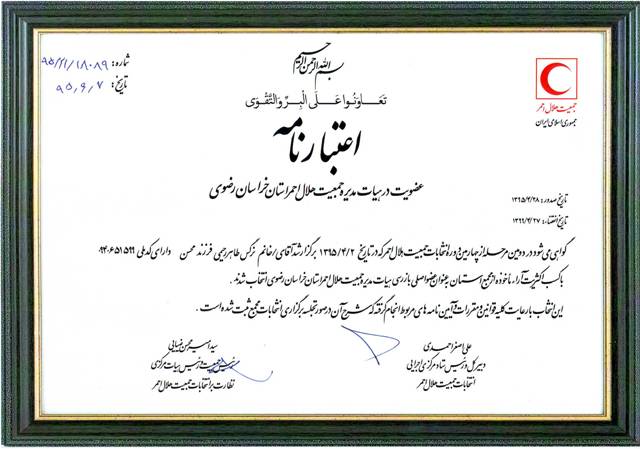 بسم الله الرحمن الرحیم
شماره: ۹۵/۲۱/۱۸۰۸۹
تاریخ: ۹۵,۶,۷
تَعاوَنُوا عَلَی البِرِّ وَالتَّقوی
جمعیت هلال احمر
جمهوری اسلامی ایران
اعتبارنامه
عضویت در هیات مدیره جمعیت هلال احمر استان خراسان رضوی
تاریخ صدور: ۱۳۹۵/۴/۲۸
تاریخ انقضاء: ۱۳۹۹/۴/۲۷
گواهی می‌شود در دومین مرحله از چهارمین دوره انتخابات جمعیت هلال احمر که در تاریخ ۱۳۹۵/۴/۲ برگزار شد آقای/خانم نرگس طاهر رحیمی فرزند محسن دارای کد ملی ۰۹۴۰۶۵۱۵۹۹
با کسب اکثریت آراء، ماخوذه از مجمع استان به عنوان عضو اصلی بازرسی هیات مدیره جمعیت هلال احمر استان خراسان رضوی انتخاب شدند.
این انتخاب با رعایت کلیه قوانین و مقررات آیین نامه های مربوط انجام گرفته که شرح آن در صورتجلسه برگزاری انتخابات مجمع ثبت شده است.
علی اصغر احمدی
دبیر کل و رئیس ستاد مرکزی اجرایی
انتخابات جمعیت هلال احمر
سید امیر محسن ضیایی
رئیس جمعیت و رئیس هیات مرکزی
نظارت بر انتخابات جمعیت هلال احمر